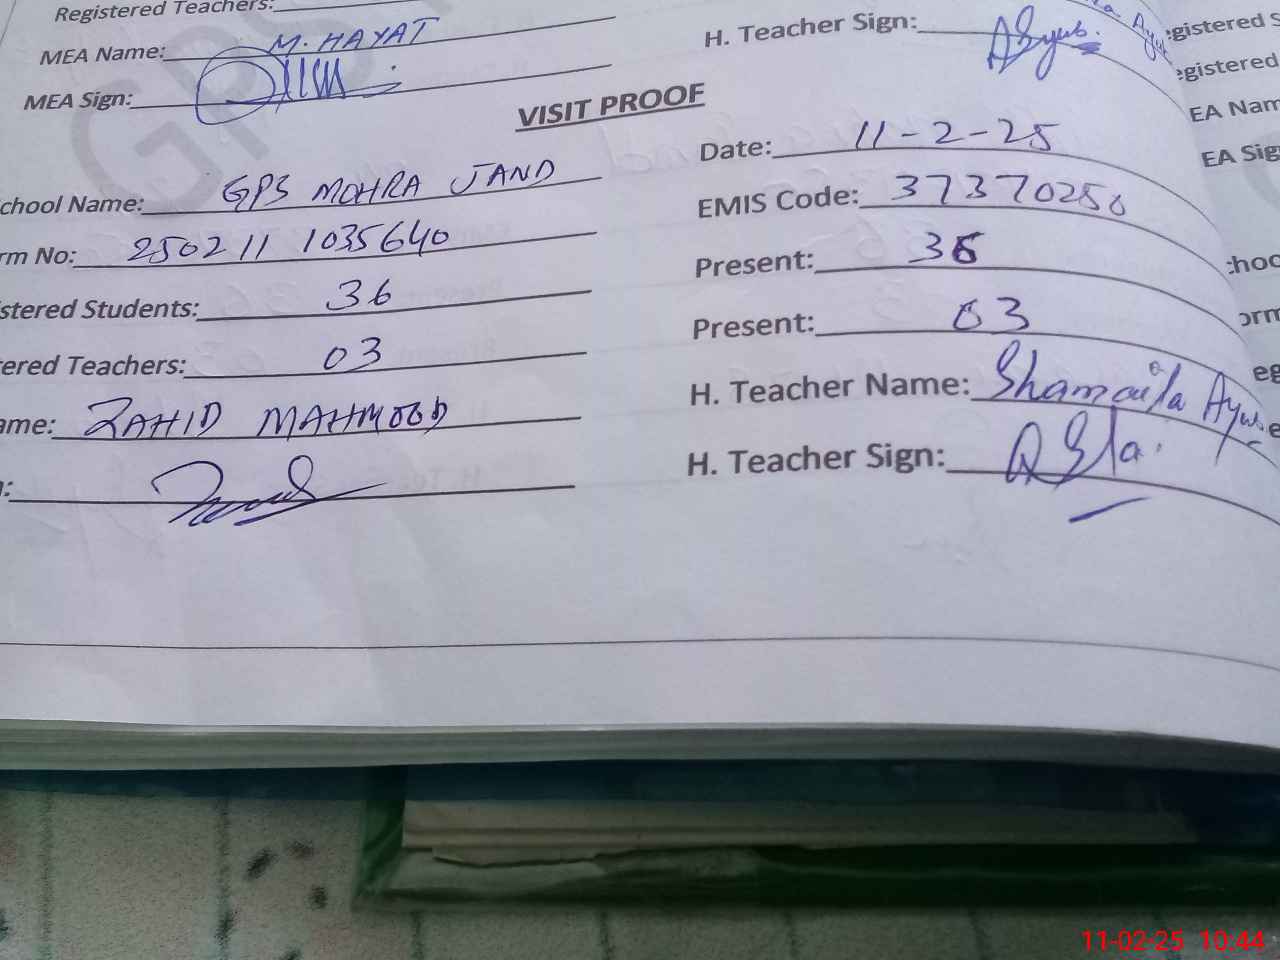 Registered Teachers:
MEA Name: M. HAYAT
H. Teacher Sign: ASyub.
MEA Sign:
VISIT PROOF
Date: 11-2-25
chool Name: GPS MOHRA JAND
EMIS Code: 37370250
rm No: 250211 1035640
Present:
stered Students: 36
Present: 03
ered Teachers: 03
H. Teacher Name: Shamaila Ayub
ame: ZAHID MAHMOOD
H. Teacher Sign:
:
egistered S
egistered
EA Nam
EA Sig
choo
orm
eg
e
GPS
11-02-25 10:44